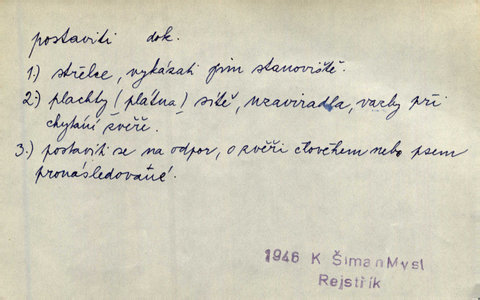 postaviti dok.
1.) střelce, vykázati jim stanoviště.
2.) plachty (plátna) sítě, uzaviradla, vazby při
chytání zvěře.
3.) postaviti se na odpor, o zvěři člověkem nebo psem
pronásledované.
1946 K ŠimanMysl
Rejstřík